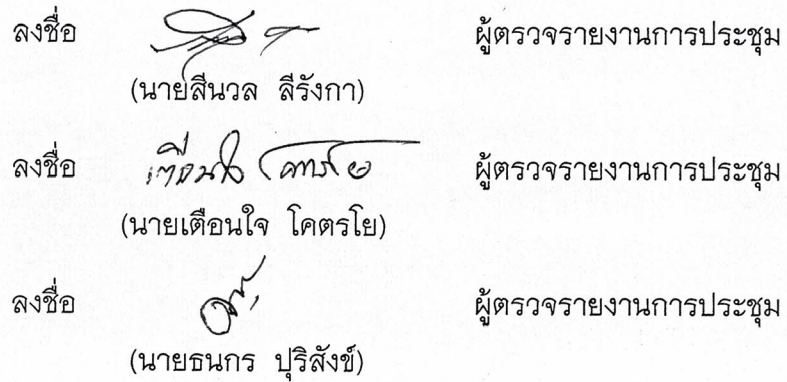 ลงชื่อ ผู้ตรวจรายงานการประชุม
(นายสีนวล ลีรังกา)
ลงชื่อ เตือนใจ โคตรโย ผู้ตรวจรายงานการประชุม
(นายเตือนใจ โคตรโย)
ลงชื่อ ผู้ตรวจรายงานการประชุม
(นายธนกร ปุริสังข์)